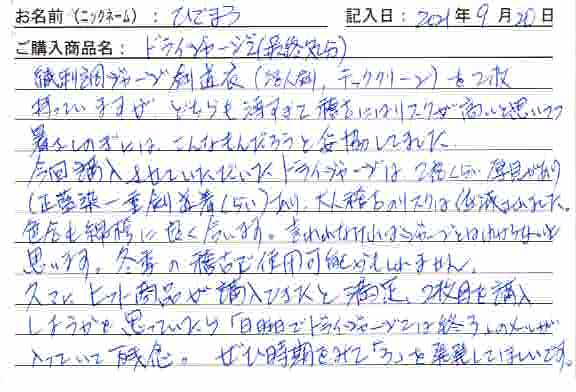 お名前(ニックネーム): ひでまろ 記入日: 2021年9月20日
ご購入商品名: ドライジャージ2(最終処分)
織刺調ジャージ剣道衣(達人剣、テッククリーン)を2枚
持っていますが、どちらも薄すぎて稽古にはリスクが高いと思いつつ
暑さしのぎには、こんなもんだろうと妥協してました。
今回購入させていただいたドライジャージは、2倍くらい厚見があり
(正藍染一重剣道着くらい)あり、大人稽古のリスクは低減されました。
色合も綿袴に良く合います。言われなければジャージとは分からないと
思います。冬季の稽古で使用可能かもしれません。
久々にヒット商品が購入できたと満足、2枚目を購入
しようかと思っていたら「日でドライジャージ2は終る」のメールが
入っていて残念。ぜひ時期をみて「3」を発売してほしいです。